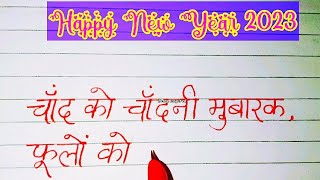 Happy New Year 2023
चाँद को चाँदनी मुबारक,
फूलों को